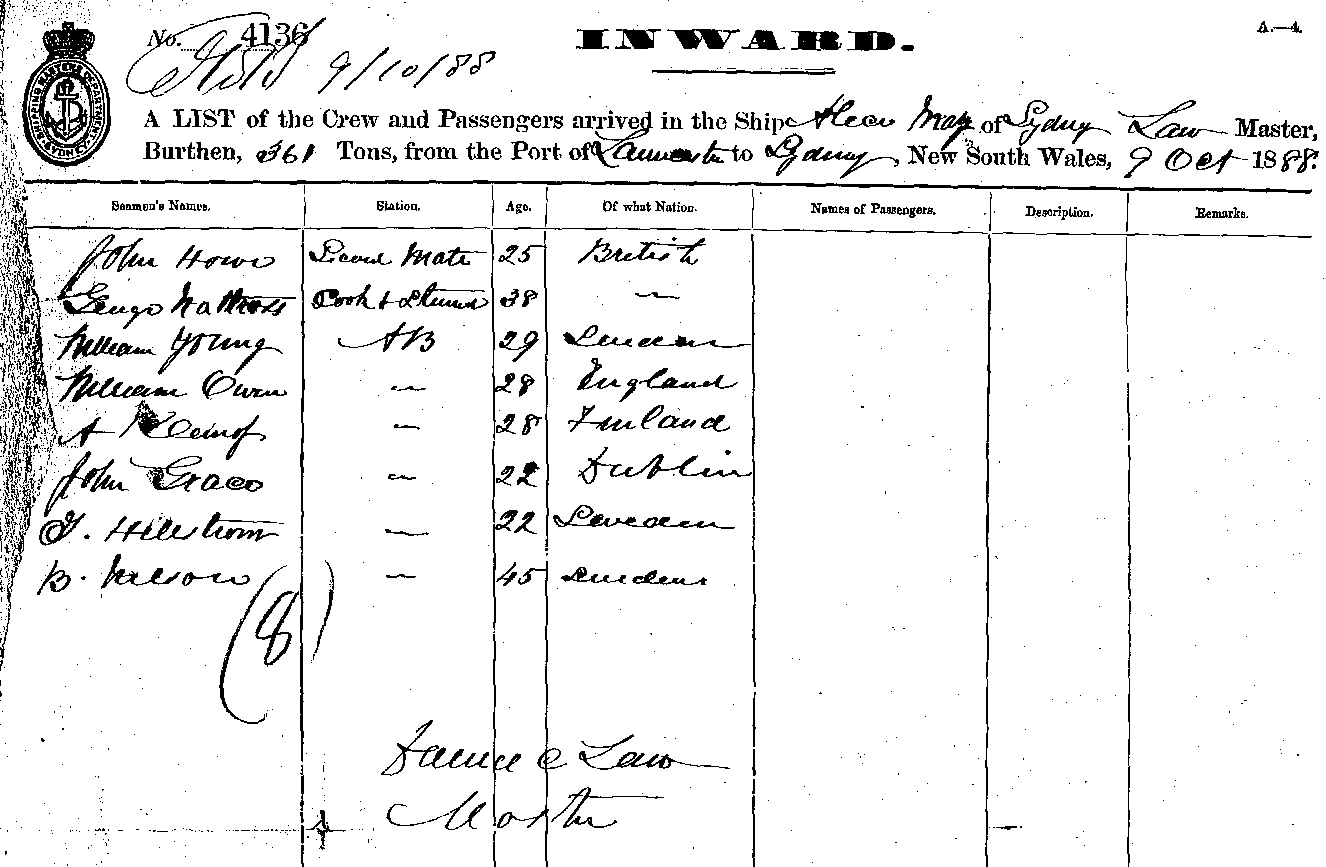 No. 4136
INWARD.
A.—4.
9/10/88
SHIPPING MASTERS DEPARTMENT SYDNEY
A LIST of the Crew and Passengers arrived in the Ship May of Sydney Law Master,
Burthen, 361 Tons, from the Port of to Sydney, New South Wales, 9 Oct 1888.
Seamen's Names. Station. Age. Of what Nation. Names of Passengers. Description. Remarks.
John Howe Second Mate 25 British
38 —
William Young AB 29 Sweden
William Owen — 28 England
A — 28 Finland
John Grace — 22 Dublin
Hillstrom — 22 Sweden
B. Nelson — 45 Sweden
(8)
C Law
Master